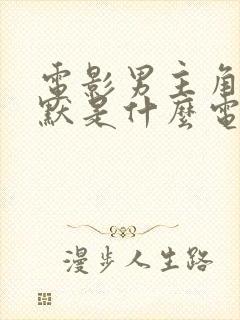 電影男主角
默是什麼電
漫步人生路